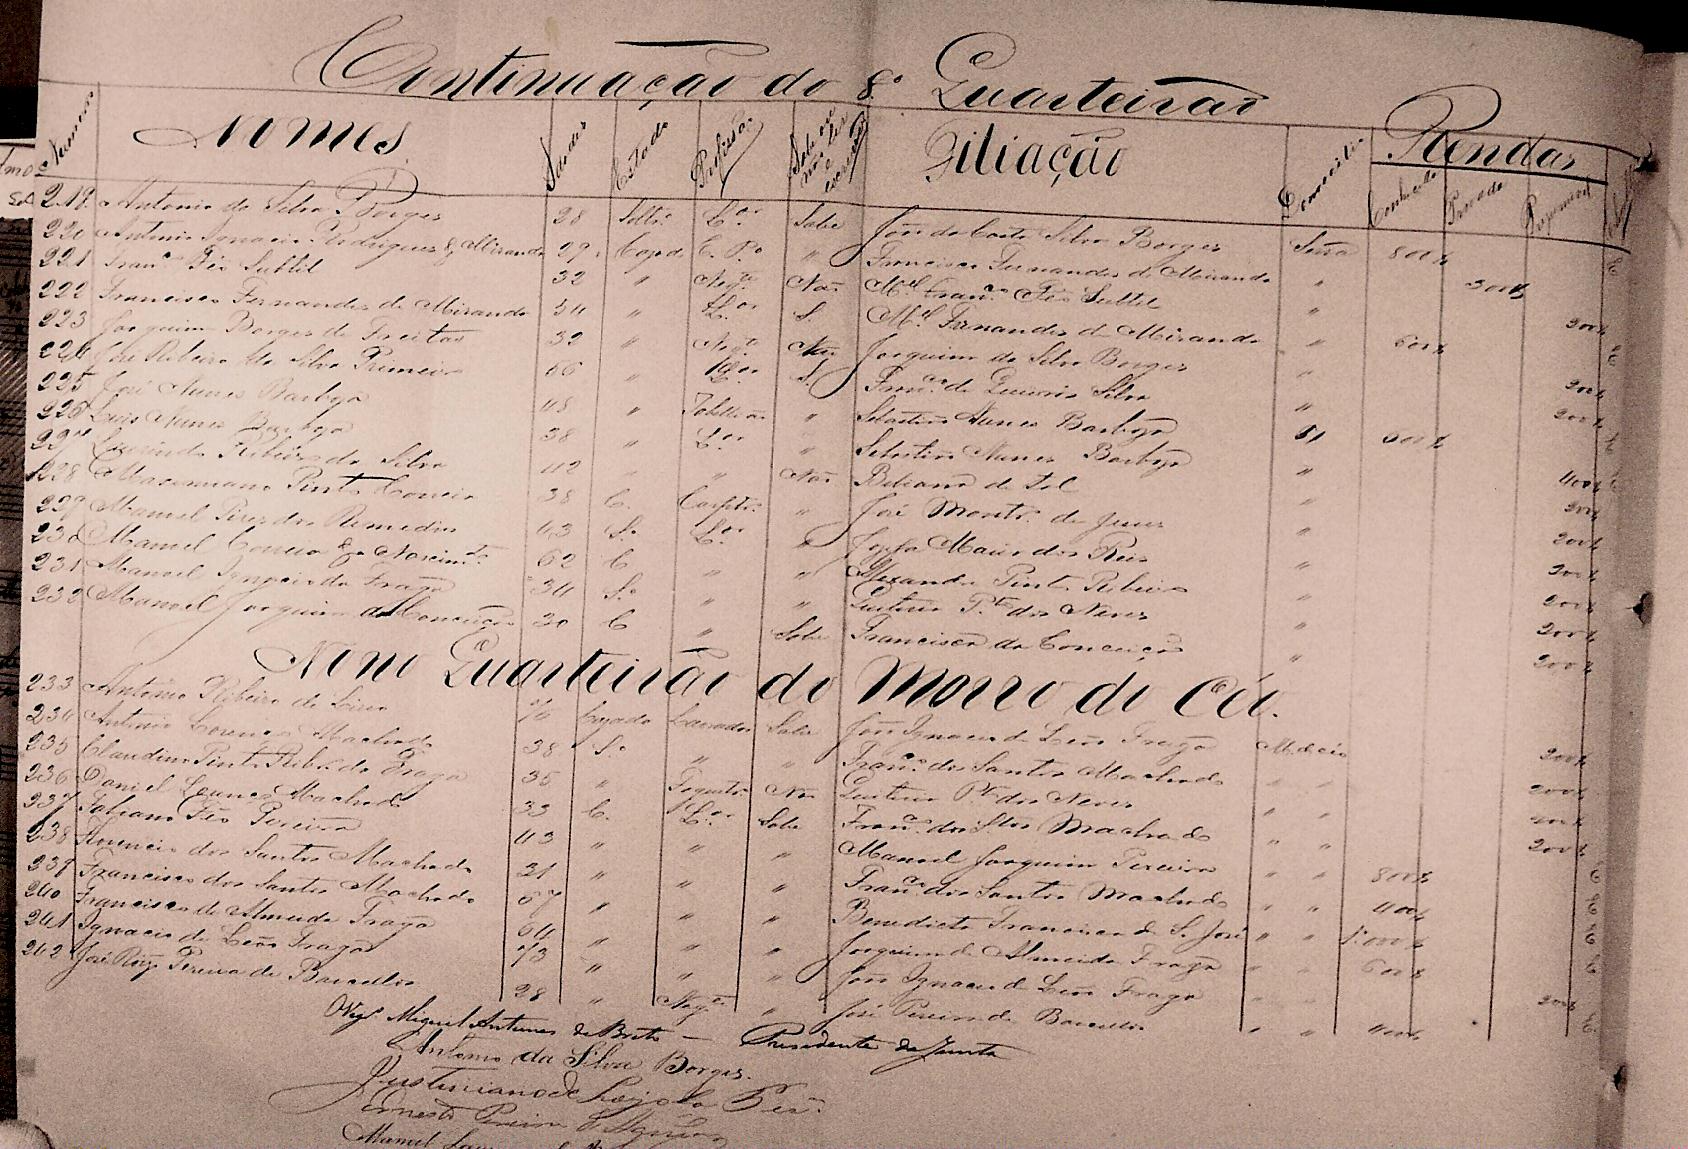 Continuação do 8º Quarteirão
Numero Nomes Idades Estado Profissão Sabe ou não ler escrever Filiação Domicilio Rendas
Conhecida Provada Presumivel
219 Antonio da Silva Borges 28 Soltº L.or Sabe João da Costa Silva Borges Serra 800$
220 Antonio Ignacio Rodrigues de Miranda 29 Casado E. P.º " Francisco Fernandes de Miranda " 300$
221 Fran.co Fêo Subtil 32 " Neg.te Não M.el Fran.co Fêo Subtil " 200$
222 Francisco Fernandes de Miranda 54 " L.or S. M.el Fernandes de Miranda " 600$
223 Joaquim Borges de Freitas 39 " Neg.te Não Joaquim da Silva Borges " 200$
224 José Ribeiro da Silva Primeiro 56 " L.or S. Fran.co de Silva " 200$
225 José Nunes Barboza 48 " Tabellião " Sebastião Nunes Barboza " 600$
226 Luis Nunes Barboza 38 " L.or " Sebastião Nunes Barboza " 400$
227 Ribeiro da Silva 42 " " Não Bibiana de Tal " 200$
228 Maximiano Pinto Correia 38 C. Carpt.º " José Mont.º de Jesus " 200$
229 Manoel Pires dos Remedios 43 S.º L.or " Josefa Maria dos Reis " 200$
230 Manoel Correia do Nascim.to 62 C " " Alexandre Pinto Ribeiro " 200$
231 Manoel Ignacio da Fraga 34 S.º " " P.to das Neves " 200$
232 Manoel Joaquim da Conceição 30 C " Sabe Francisca da Conceição " 200$
Nono Quarteirão do Morro do Céo.
233 Antonio Ribeiro de 76 Cazado Lavrador Sabe João Ignacio de Leão Fraga 200$
234 Antonio Lourenço Machado 38 S.º " " Fran.co dos Santos Machado " " 200$
235 Claudino Pinto Rib.º da Fraga 35 " Não P.to das Neves " " 200$
236 Daniel Machado 33 C. L.or Sabe Fran.co dos S.tos Machado " " 200$
237 Fabiano Fêo Pereira 43 " " " Manoel Joaquim Pereira " " 800$
238 dos Santos Machado 21 " " " Fran.co dos Santos Machado " " 400$
239 Francisco dos Santos Machado 67 " " " Benedicto Francisco de S. José " " 1:000$
240 Francisco de Almeida Fraga 64 " " " Joaquim de Almeida Fraga " " 600$
241 Ignacio de Leão Fraga 73 " " " João Ignacio de Leão Fraga " " 200$
242 José Roiz Pereira de Barcellos 28 " Neg.te " José Pereira de Barcellos " " 400$
Vig.º Miguel Antunes de Brito — Presidente da Junta
Antonio da Silva Borges.
Justiniano de Loyola
Ernesto Pereira
Manoel